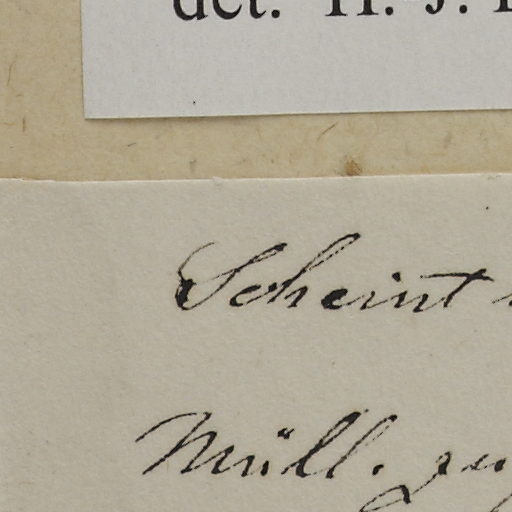 det. H. J.
Scheint
Müll. zu